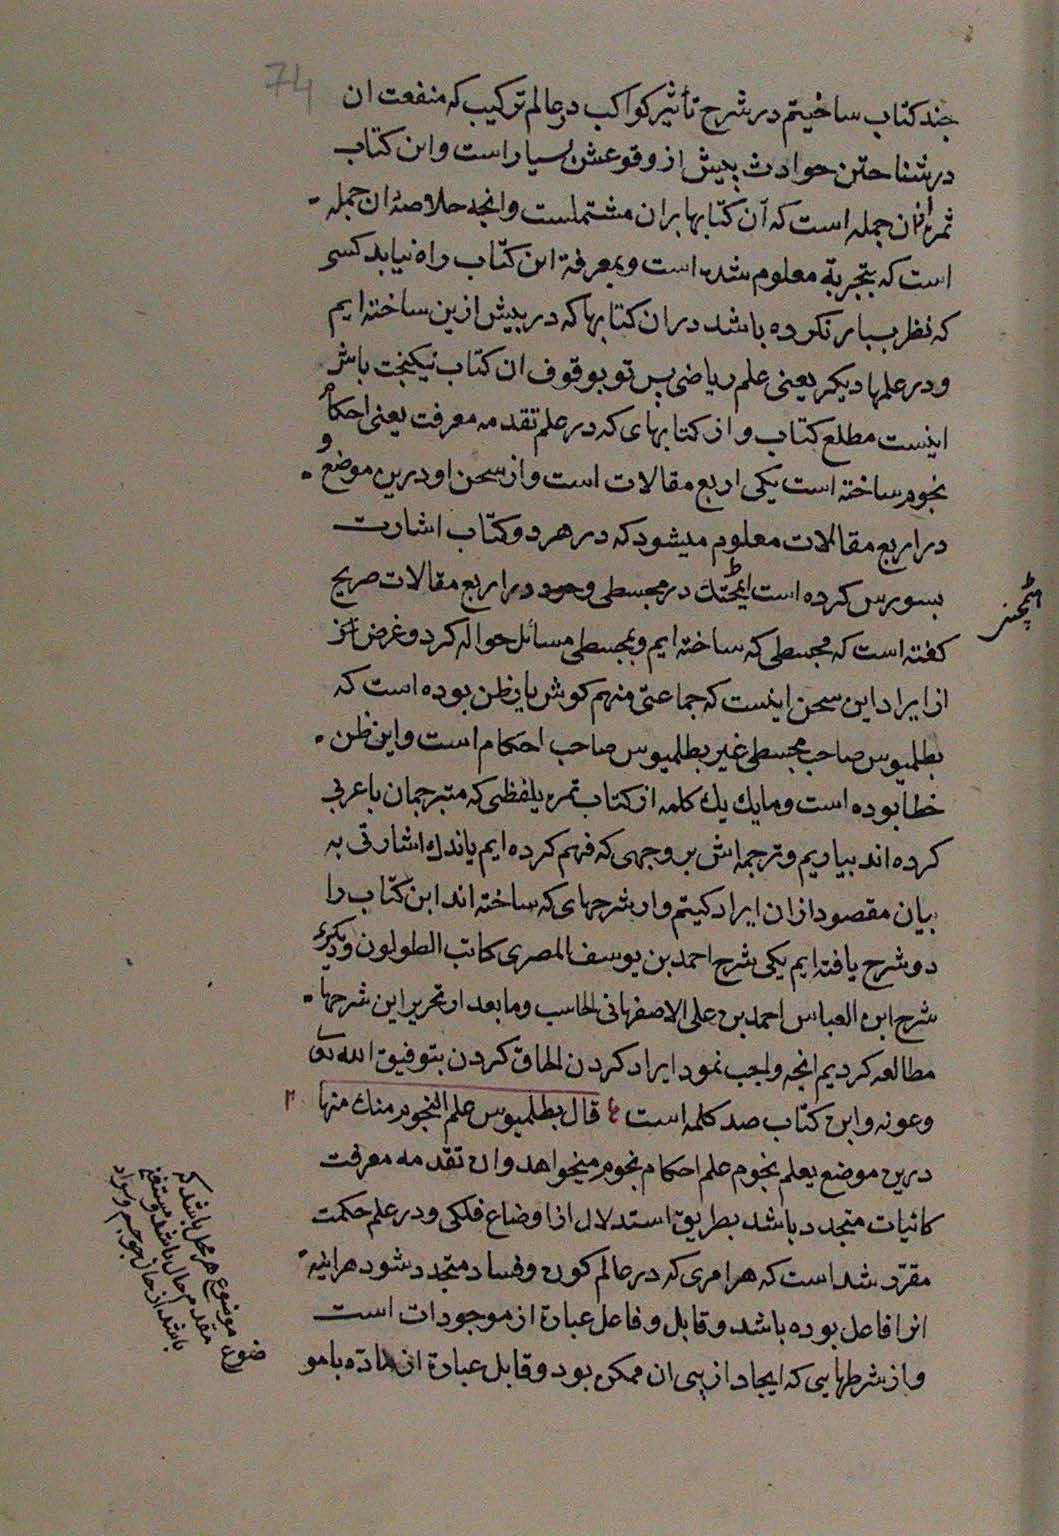 74
جند کتاب ساختیم در شرح تأثیر کواکب در عالم ترکیب که منفعت ان
در شناختن حوادث پیش از وقوعش بسیار است واین کتاب
ثمره ان جمله است که آن کتابها بران مشتملست وانجه خلاصه ان جمله
است که بتجربة معلوم شده است وبمعرفة این کتاب راه نیابد کسی
که نظر بسیار نکرده باشد دران کتابها که در پیش ازین ساخته ایم
ودر علمها دیکر یعنی علم ریاضی پس تو بوقوف ان کتاب نیکبخت باش
اینست مطلع کتاب واز کتابهای که در علم تقدمه معرفت یعنی احکام
نجوم ساخته است یکی اربع مقالات است واز سخن او درین موضع و
در اربع مقالات معلوم میشود که در هر دو کتاب اشارت
بسورس کرده است در مجسطی ودر اربع مقالات صریح
کفته است که مجسطی که ساخته ایم وبمجسطی مسائل حواله کرد وغرض
از ایراد این سخن اینست که جماعتی را ظن بوده است که
بطلمیوس صاحب مجسطی غیر بطلمیوس صاحب احکام است واین ظن
خطا بوده است وما یك یك کلمه از کتاب ثمره بلفظی که مترجمان با عربی
کرده اند بیاریم وترجمه اش بر وجهی که فهم کرده ایم باندك اشارتی به
بیان مقصود ازان ایراد کنیم واز شرحهای که ساخته اند این کتاب را
دو شرح یافته ایم یکی شرح احمد بن یوسف المصری کاتب الطولون ودیکری
شرح ابو العباس احمد بن علی الاصفهانی الحاسب وما بعد از تحریر این شرحها
مطالعه کردیم انجه واجب نمود ایراد کردن الحاق کردن بتوفیق الله تعالی
وعونه واین کتاب صد کلمه است قال بطلمیوس علم النجوم منك منها
درین موضع بعلم نجوم علم احکام نجوم میخواهد وان تقدمه معرفت
کائنات متجدد باشد بطریق استدلال از اوضاع فلکی ودر علم حکمت
مقرر شده است که هر امری که در عالم کون وفساد متجدد شود هراینه
انرا فاعل بوده باشد وقابل وفاعل عبارة از موجودات است
واز شرطهایی که ایجاد از پی ان ممکن بود وقابل عبارة از ماده با مو
ضوع
موضوع هر محل باشد که
مقدم حال باشد ومستغنی
باشد از حال چو جسم وسواد